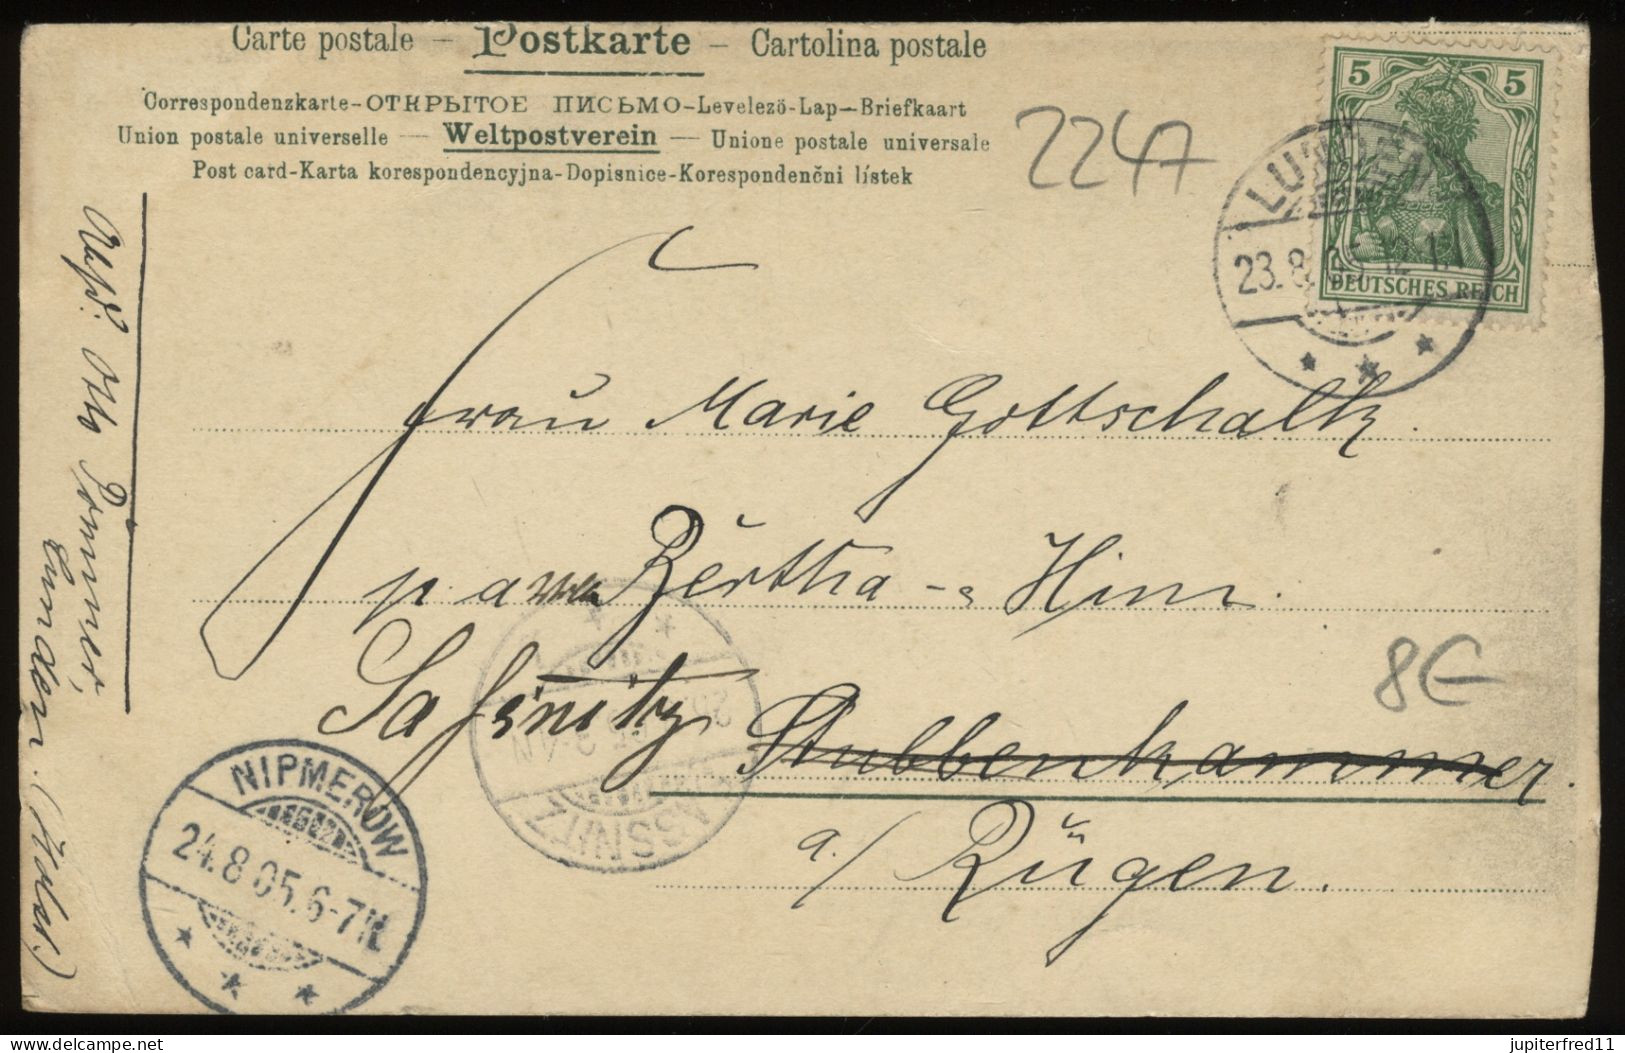 Carte postale – Postkarte – Cartolina postale
Correspondenzkarte-ОТКРЫТОЕ ПИСЬМО-Levelezö-Lap-Briefkaart
Union postale universelle — Weltpostverein — Unione postale universale
Post card-Karta korespondencyjna-Dopisnice-Korespondenčni lístek
2247
5 5
DEUTSCHES REICH
23.8.05
Frau Marie Gottschalk.
p
Bertha
Saßnitz Stubbenkammer.
a/ Rügen.
8€
SASSNITZ
NIPMEROW
24.8.05.6-7N.
Otto
jupiterfred11